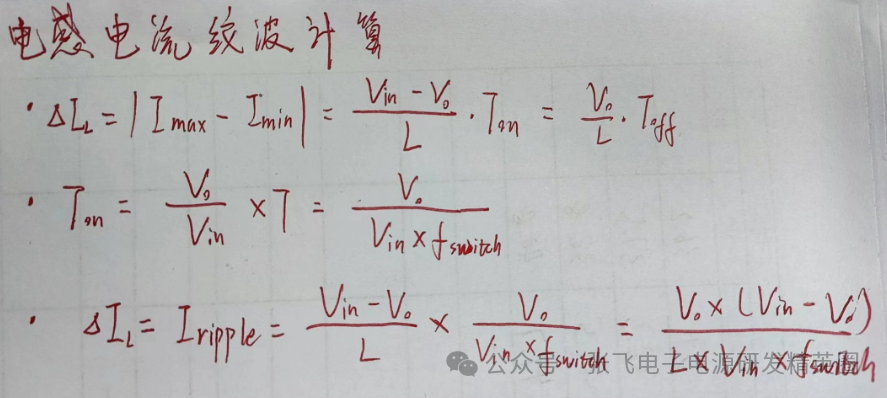 电感电流纹波计算
· ΔI_L = | I_max - I_min | = (V_in - V_o)/L · T_on = V_o/L · T_off
· T_on = V_o/V_in × T = V_o/(V_in × f_switch)
· ΔI_L = I_ripple = (V_in - V_o)/L × V_o/(V_in × f_switch) = (V_o × (V_in - V_o))/(L × V_in × f_switch)
公众号 · 张飞电子电源研发精英圈